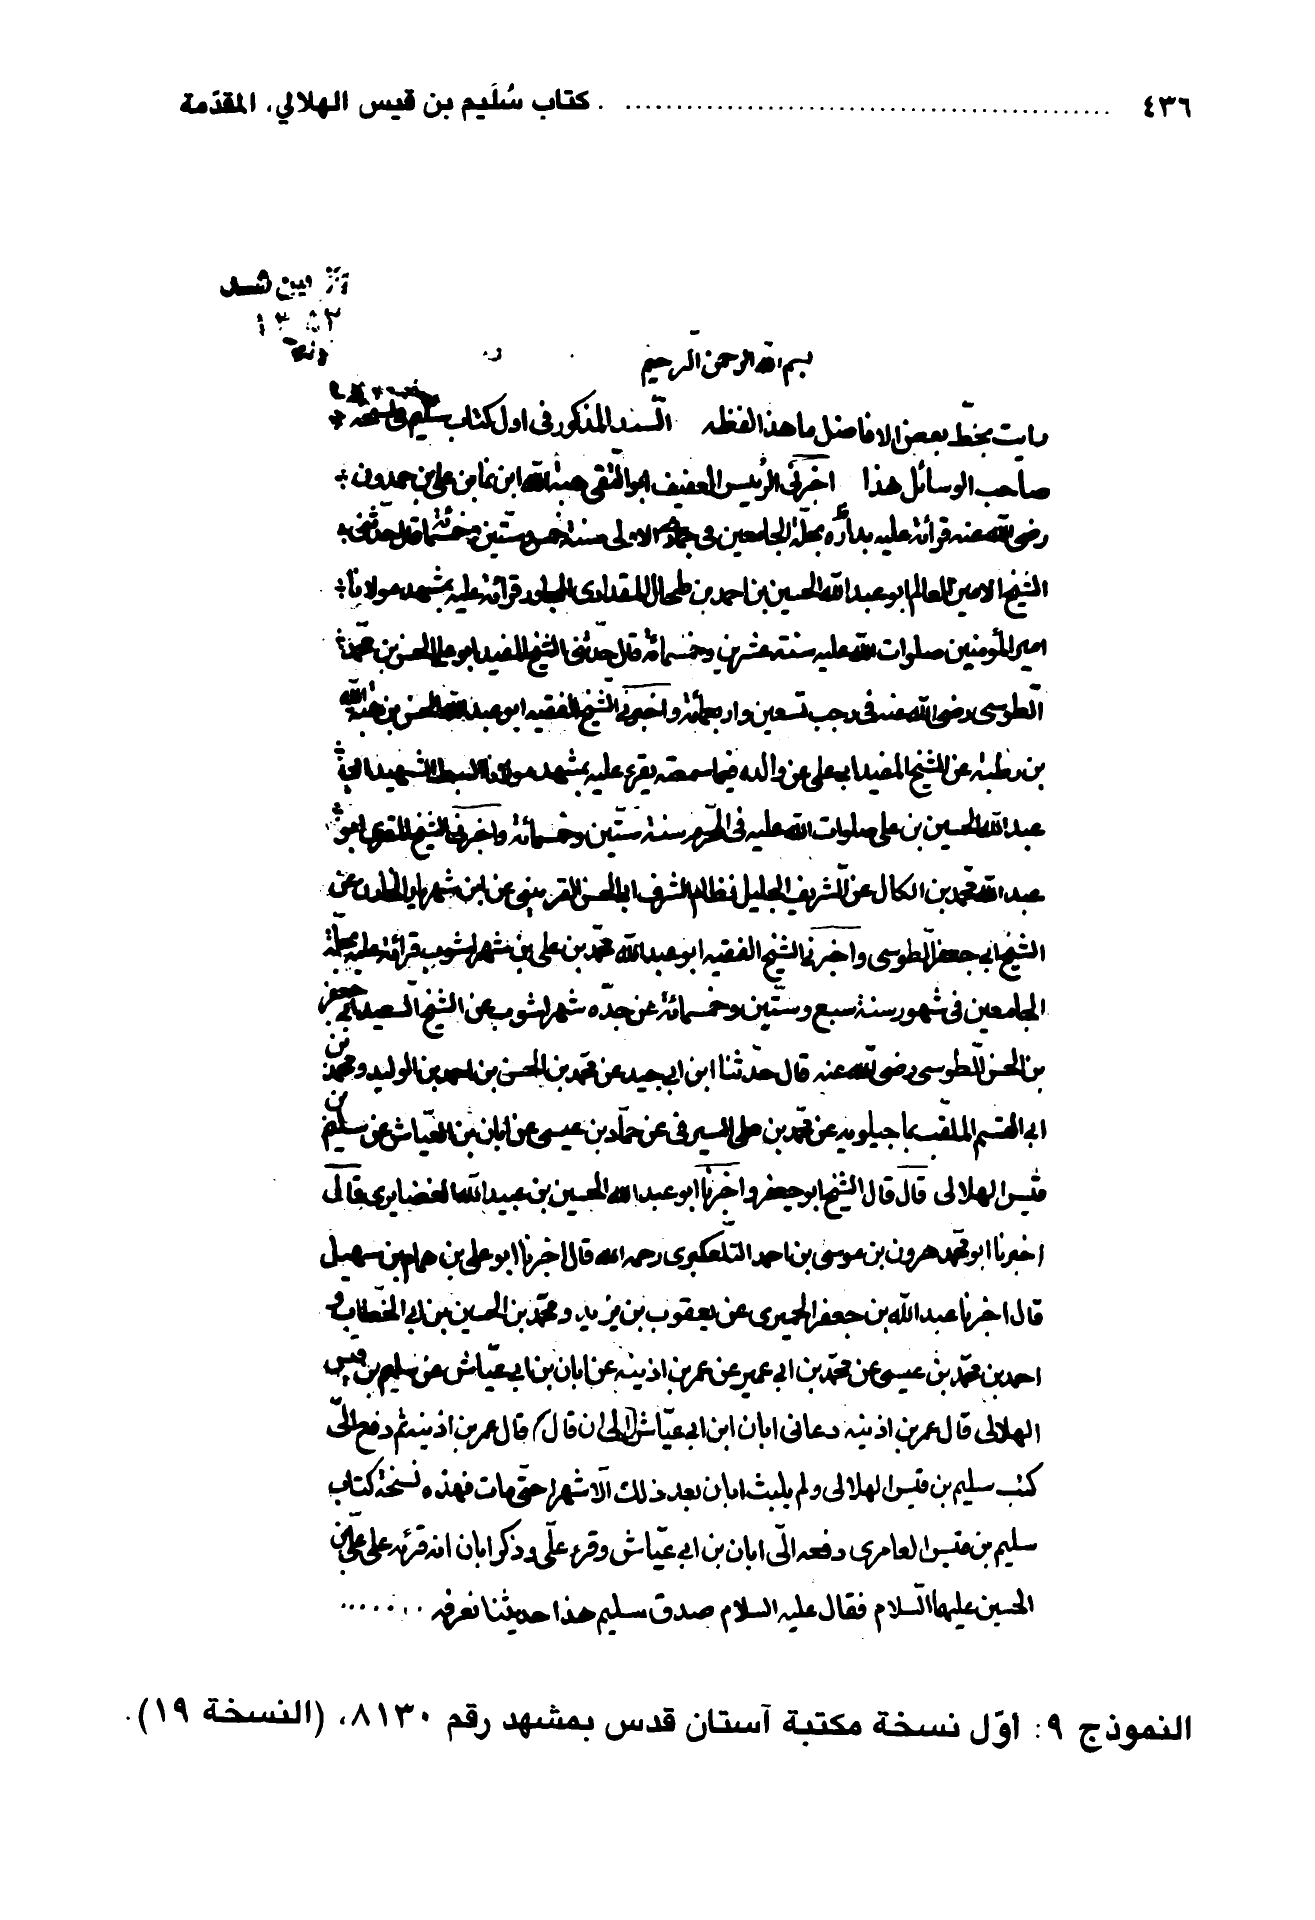 ٤٣٦ .......................................... كتاب سُلَيم بن قيس الهلالي، المقدّمة
بسم الله الرحمن الرحيم
رايت بخطّ بعض الافاضل ما هذا لفظه السّند المذكور فى اول كتاب سليم فى
صاحب الوسائل هذا اخبرنى الرئيس العفيف ابو التقى هبة الله ابن نما بن على بن حمدون
رضى الله عنه قرائة عليه بداره بحلة الجامعين فى جمادى الاولى سنة خمس وستّين وخمسمائة قال حدّثنى
الشيخ الامين العالم ابو عبد الله الحسين بن احمد بن طحال المقدادى المجاور قرائة عليه بمشهد مولانا
امير المؤمنين صلوات الله عليه سنة عشرين وخمسمائة قال حدّثنى الشيخ المفيد ابو على الحسن بن محمّد
الطّوسى رضى الله عنه فى رجب تسعين واربعمائة واخبرنى الشّيخ الفقيه ابو عبد الله الحسن بن هبة الله
بن رطبة عن الشيخ المفيد ابى على عن والده فيما سمعته يقرء عليه بمشهد مولانا السبط الشهيد ابى
عبد الله الحسين بن على صلوات الله عليه فى المحرّم سنة ستّين وخمسمائة واخبرنى الشيخ المقرى ابو
عبد الله محمد بن الكال عن الشّريف الجليل نظام الشرف ابى الحسن العريضى عن ابن شهريار الخازن عن
الشيخ ابى جعفر الطوسى واخبرنى الشيخ الفقيه ابو عبد الله محمّد بن على بن شهراشوب قرائة عليه بحلّة
الجامعين فى شهور سنة سبع وستّين وخمسمائة عن جدّه شهراشوب عن الشيخ السّعيد ابى جعفر
بن الحسن الطوسى رضى الله عنه قال حدّثنا ابن ابى جيد عن محمّد بن الحسن بن احمد بن الوليد ومحمّد بن
ابى القسم الملقّب بماجيلويه عن محمّد بن على الصيرفى عن حمّاد بن عيسى عن ابان بن العيّاش عن سليم بن
قيس الهلالى قال قال الشيخ ابو جعفر واخبرنا ابو عبد الله الحسين بن عبيد الله الغضايرى قال
اخبرنا ابو محمّد هرون بن موسى بن احمد التلّعكبرى رحمه الله قال اخبرنا ابو على بن همام بن سهيل
قال اخبرنا عبد الله بن جعفر الحميرى عن يعقوب بن يزيد ومحمّد بن الحسين بن ابى الخطّاب و
احمد بن محمّد بن عيسى عن محمّد بن ابى عمير عن عمر بن اذينه عن ابان بن ابى عيّاش عن سليم بن قيس
الهلالى قال عمر بن اذينه دعانى ابان ابن ابى عيّاش الى ان قال قال عمر بن اذينه ثم دفع الىّ
كتب سليم بن قيس الهلالى ولم يلبث ابان بعد ذلك الّا شهرا حتّى مات فهذه نسخة كتاب
سليم بن قيس العامرى دفعه الىّ ابان بن ابى عيّاش وقرء علىّ وذكر ابان انه قرئه على علىّ بن
الحسين عليهما السّلام فقال عليه السلام صدق سليم هذا حديثنا نعرفه ......
النموذج ٩: أوّل نسخة مكتبة آستان قدس بمشهد رقم ٨١٣٠، (النسخة ١٩).